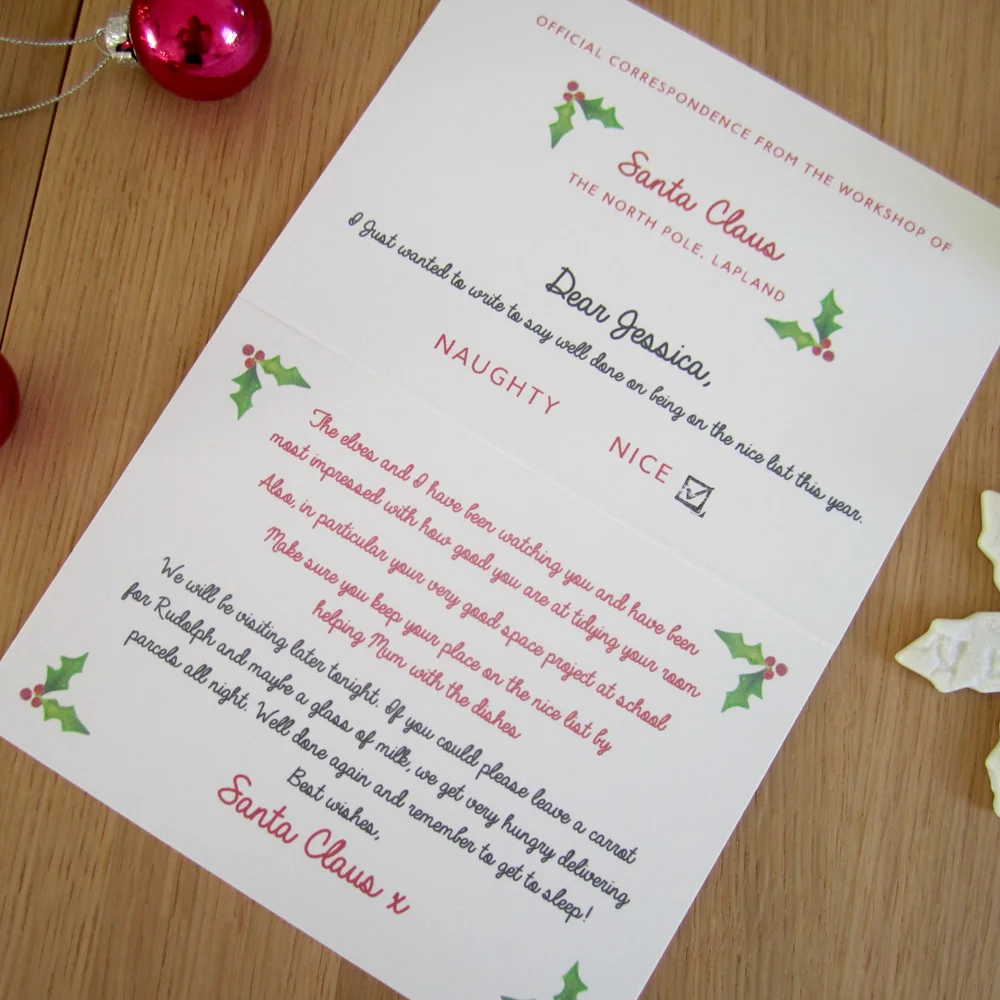 OFFICIAL CORRESPONDENCE FROM THE WORKSHOP OF
Santa Claus
THE NORTH POLE, LAPLAND
Dear Jessica,
I Just wanted to write to say well done on being on the nice list this year.
NAUGHTY
NICE
The elves and I have been watching you and have been
most impressed with how good you are at tidying your room
Also, in particular your very good space project at school
Make sure you keep your place on the nice list by
helping Mum with the dishes
We will be visiting later tonight. If you could please leave a carrot
for Rudolph and maybe a glass of milk, we get very hungry delivering
parcels all night. Well done again and remember to get to sleep!
Best wishes,
Santa Claus x